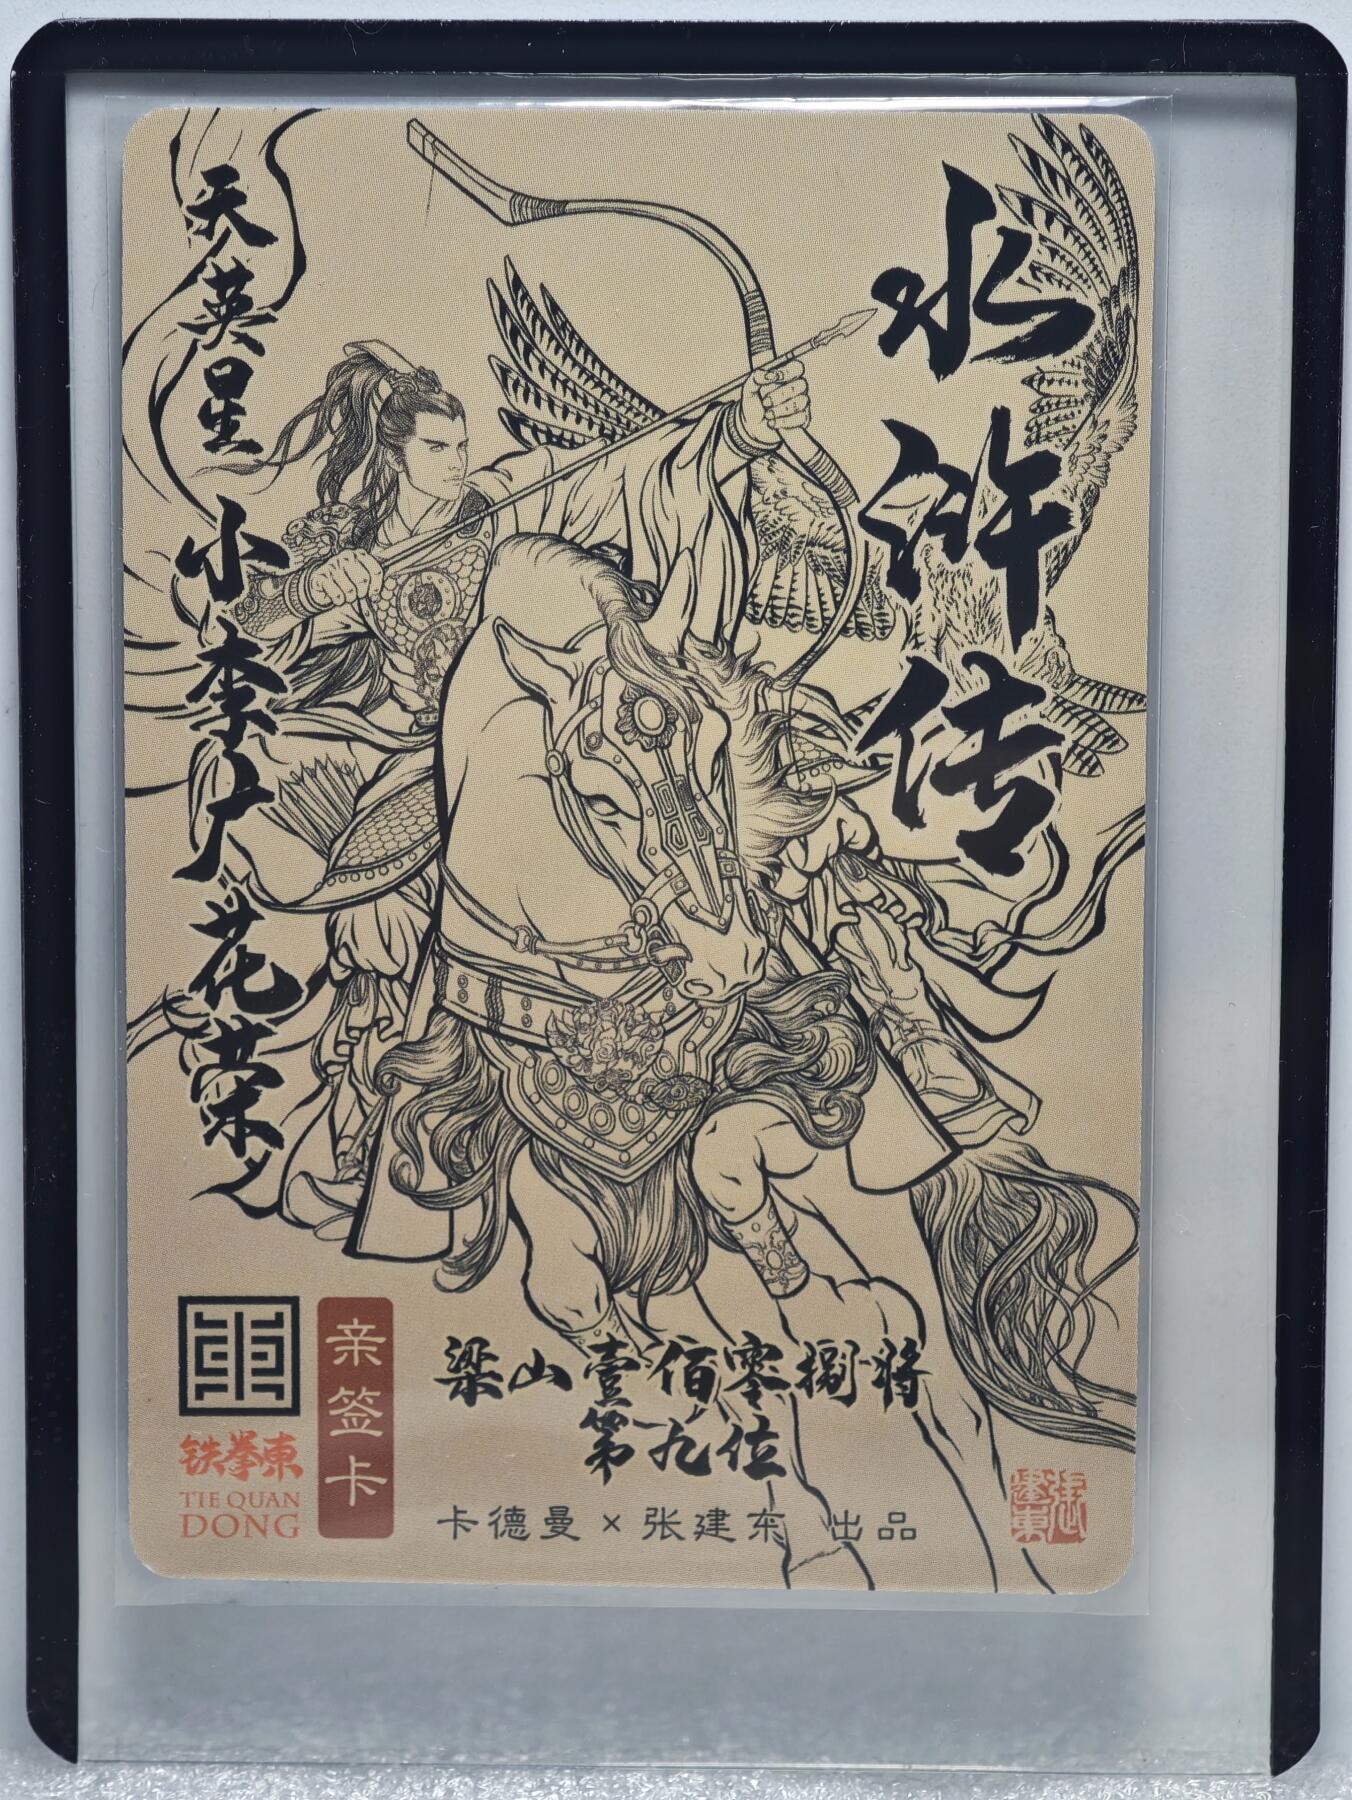 水浒传
天英星
小李广花荣
梁山壹佰零捌将
第九位
铁拳東
TIE QUAN
DONG
亲签卡
卡德曼×张建东 出品
张建東